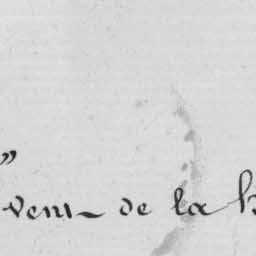 ”
vent de la